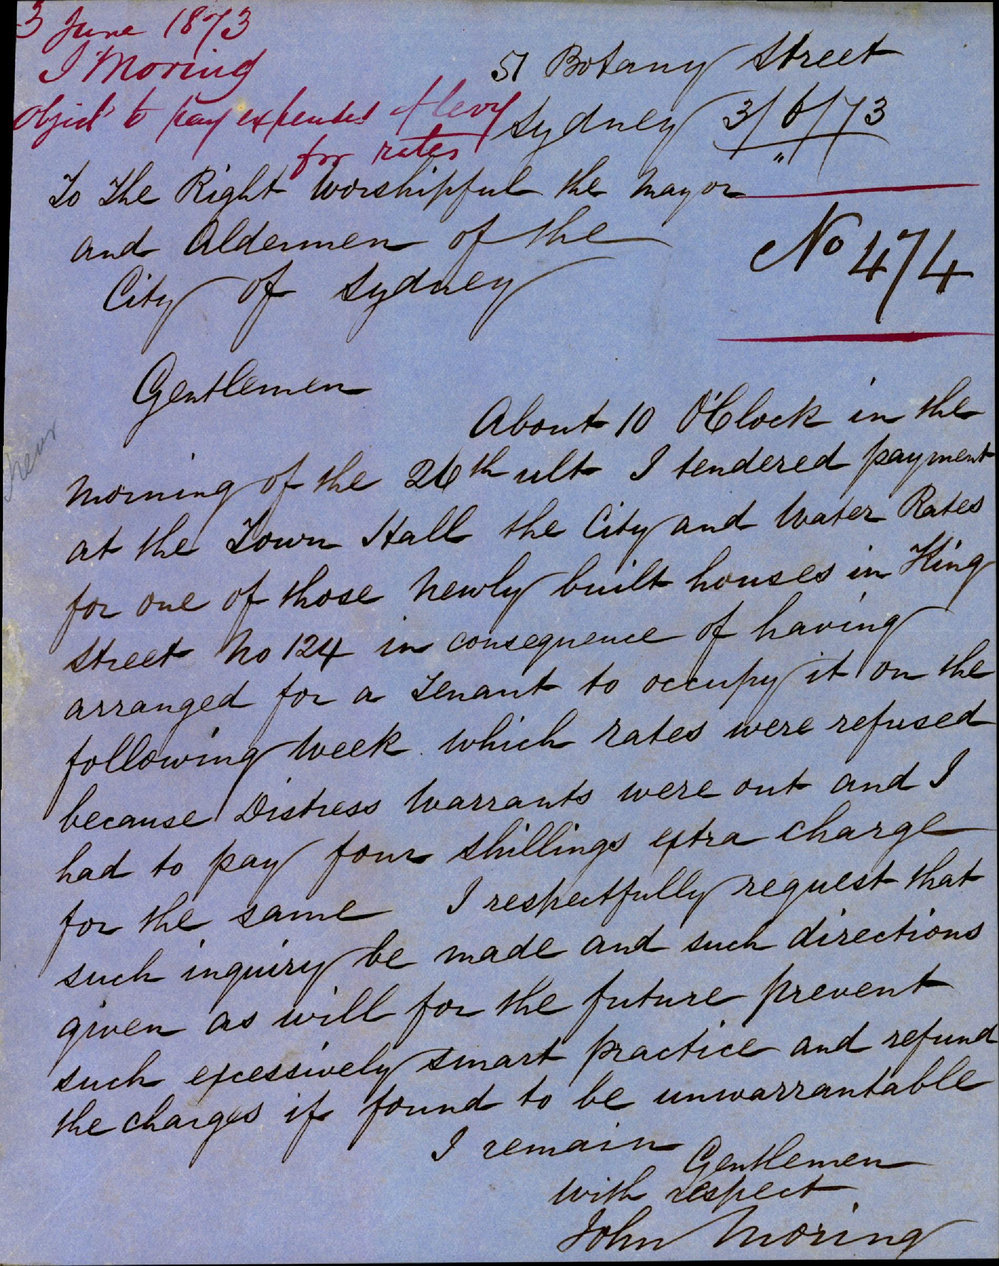 3 June 1873
J Moring
Object to pay expenses of levy
for rates
51 Botany Street
Sydney 3/6/73
To The Right Worshipful the Mayor
and Aldermen of the
City of Sydney
No 474
Gentlemen
About 10 O'Clock in the
morning of the 26th ult I tendered payment
at the Town Hall the City and Water Rates
for one of those newly built houses in King
Street No 124 in consequence of having
arranged for a Tenant to occupy it on the
following Week which rates were refused
because Distress Warrants were out and I
had to pay four shillings extra charge
for the same I respectfully request that
such inquiry be made and such directions
given as will for the future prevent
such excessively smart practice and refund
the charges if found to be unwarrantable
I remain Gentlemen
with respect
John Moring